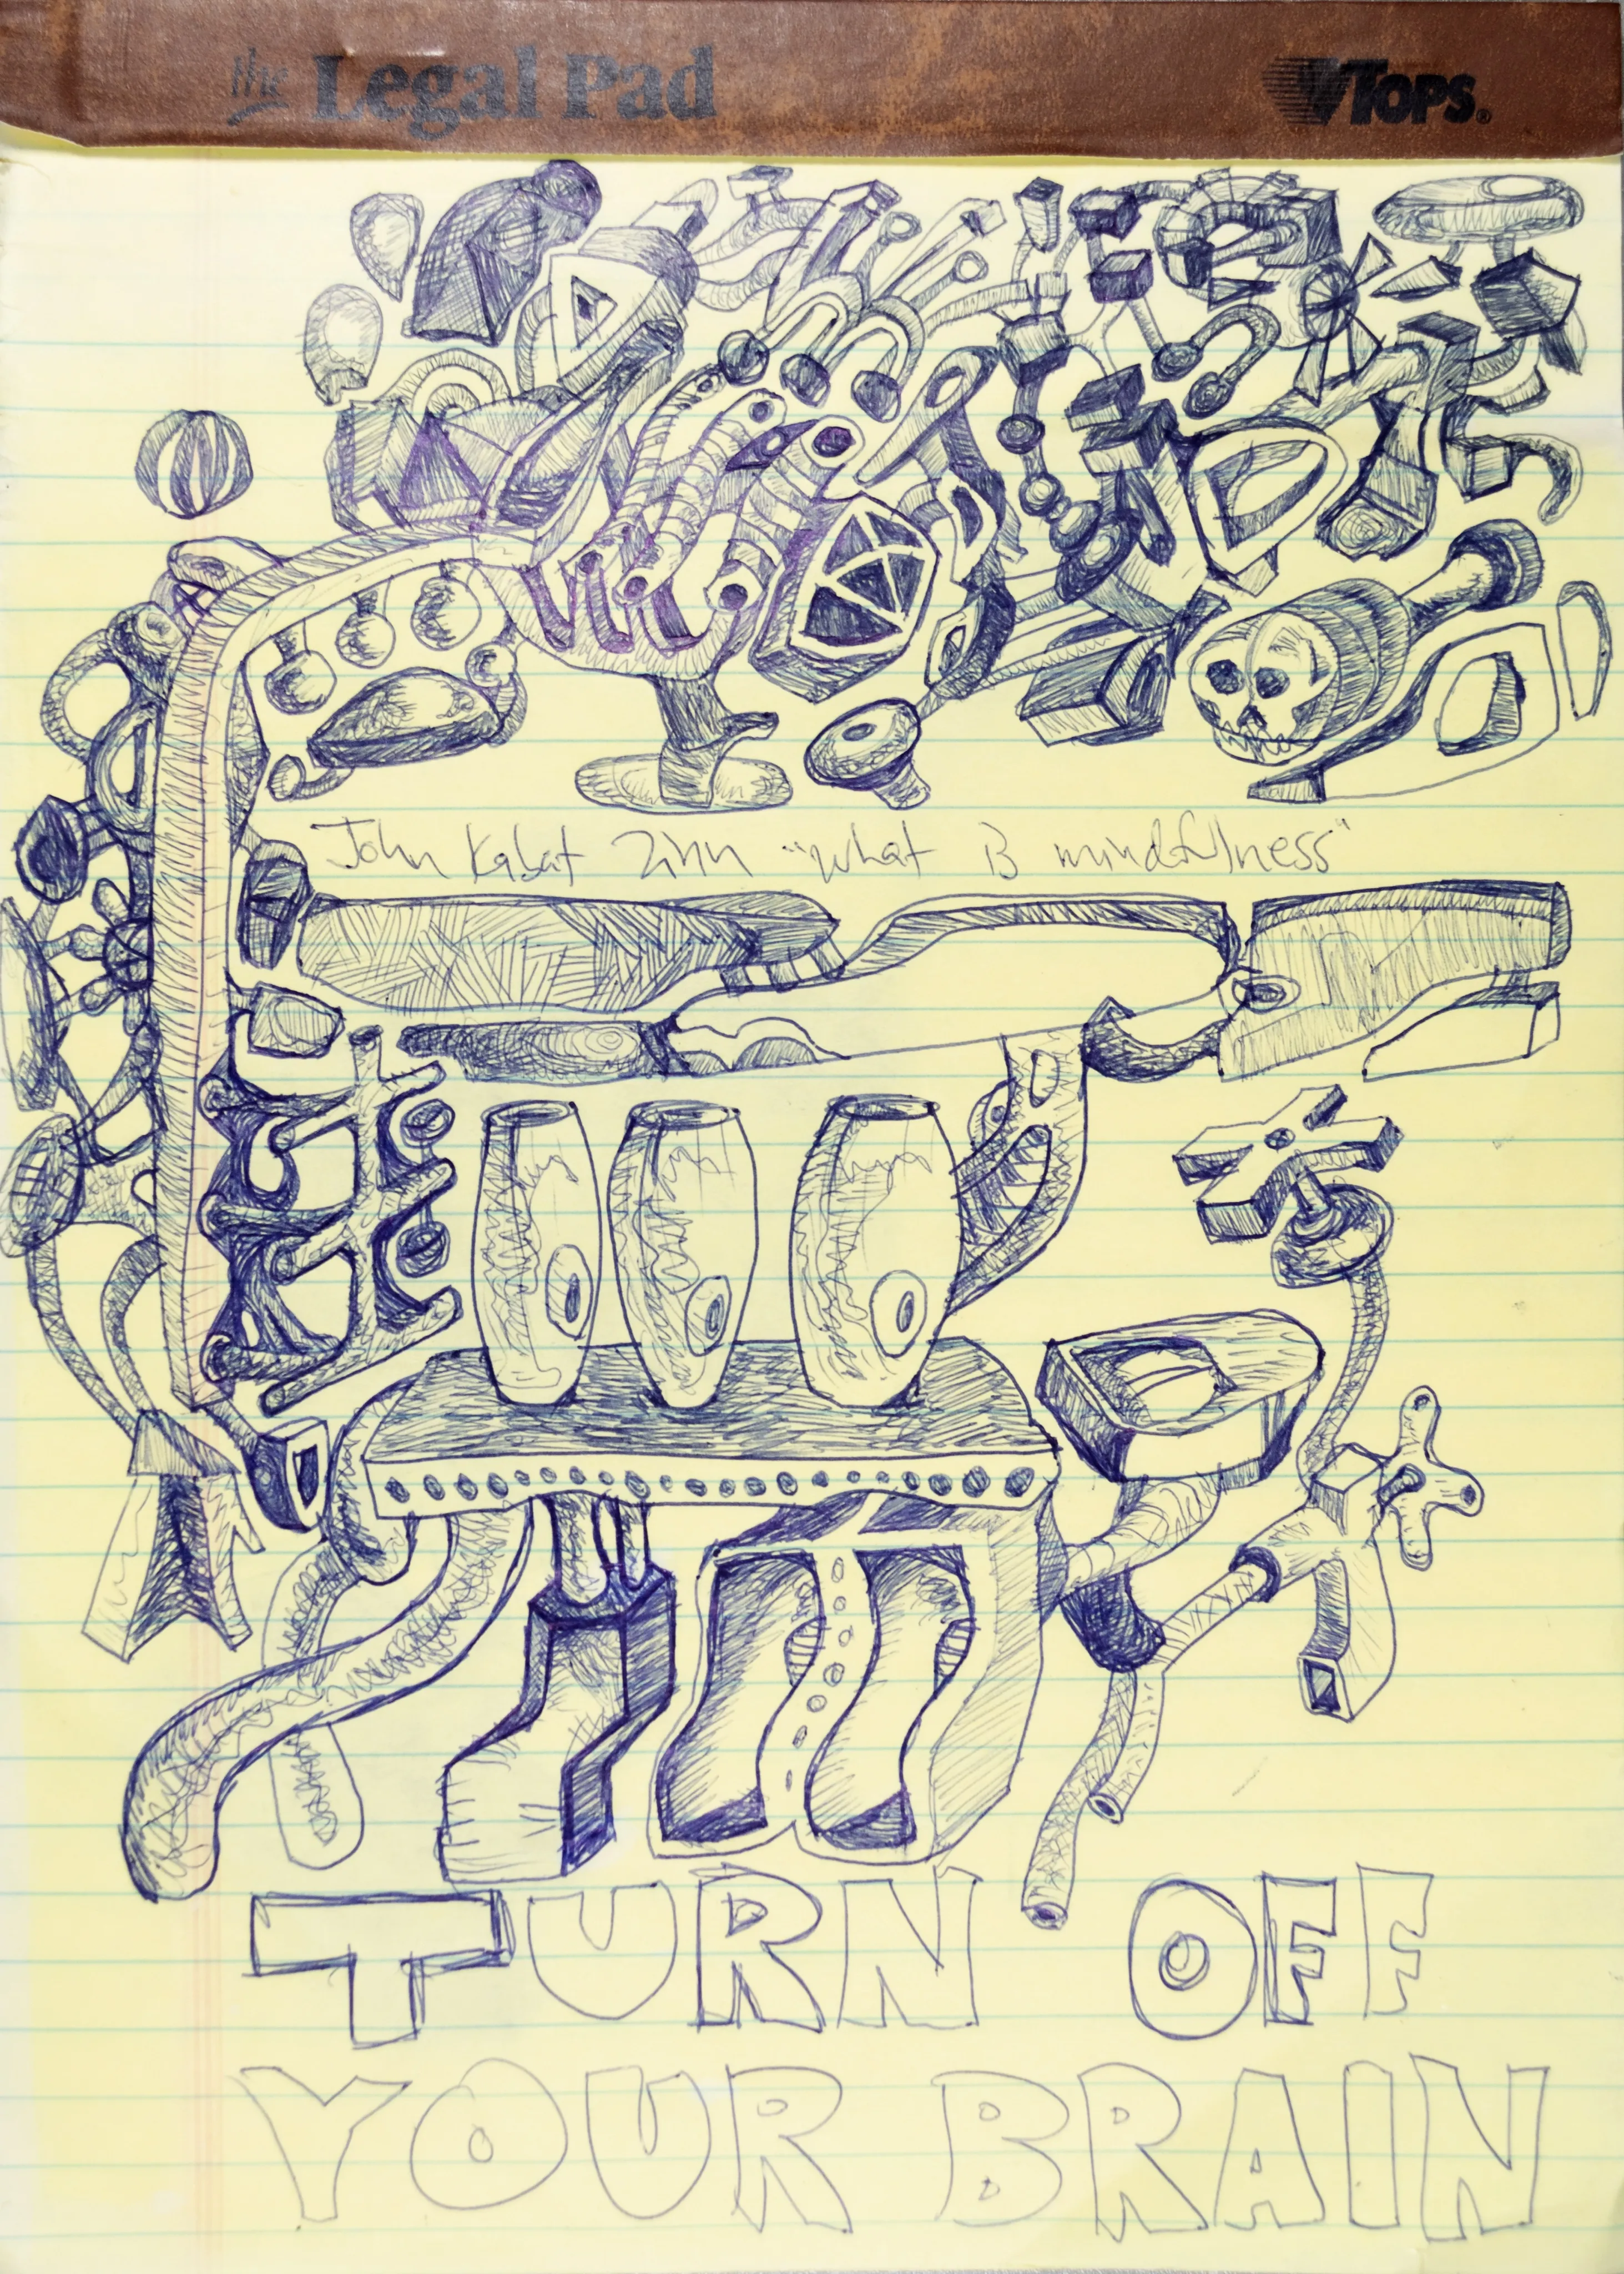 the Legal Pad
TOPS®
John Kabat Zinn "what is mindfulness"
TURN OFF
YOUR BRAIN